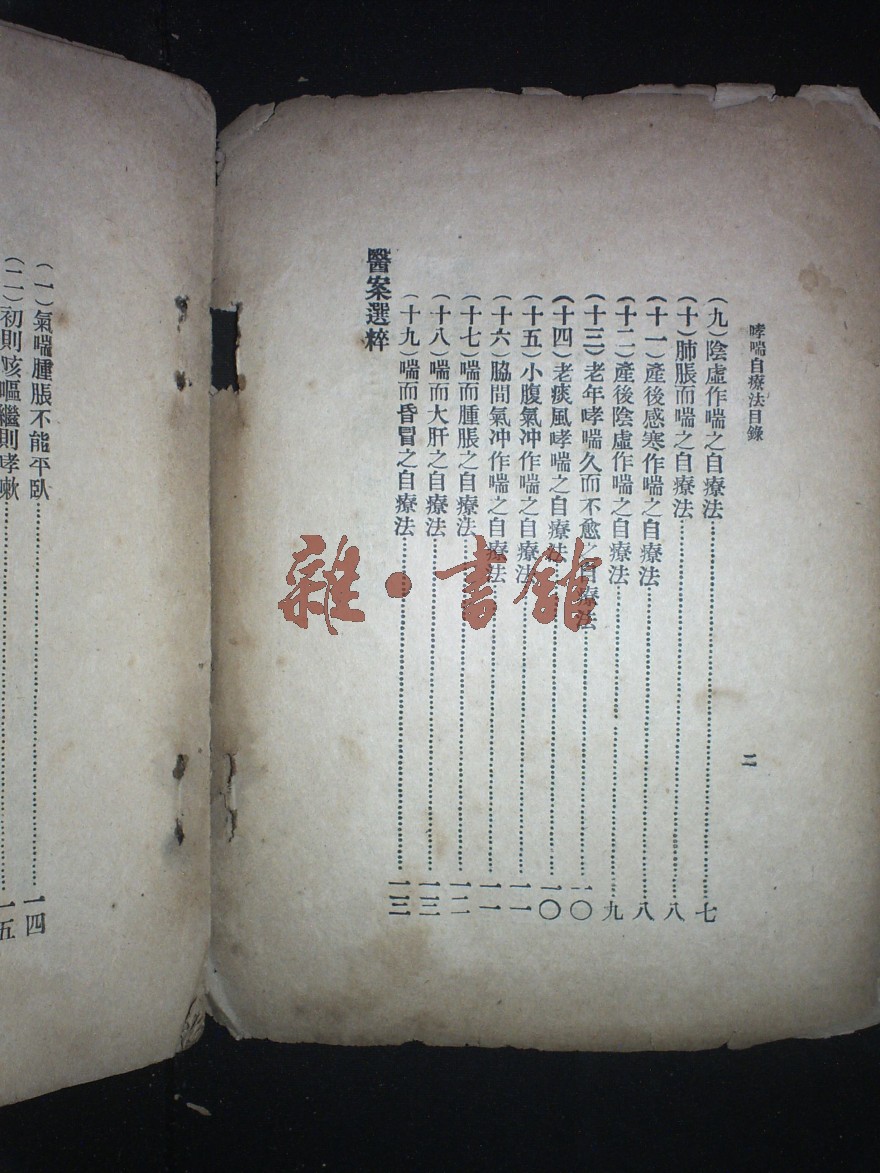 哮喘自療法目錄
二
（九）陰虛作喘之自療法……七
（十）肺脹而喘之自療法……八
（十一）產後感寒作喘之自療法……八
（十二）產後陰虛作喘之自療法……九
（十三）老年哮喘久而不愈之自療法……一〇
（十四）老痰風哮喘之自療法……一〇
（十五）小腹氣冲作喘之自療法……一一
（十六）脇間氣冲作喘之自療法……一一
（十七）喘而腫脹之自療法……一二
（十八）喘而大肝之自療法……一三
（十九）喘而昏冒之自療法……一三
醫案選粹
（一）氣喘腫脹不能平臥……一四
（二）初則咳嘔繼則哮嗽……一五
雜·書館